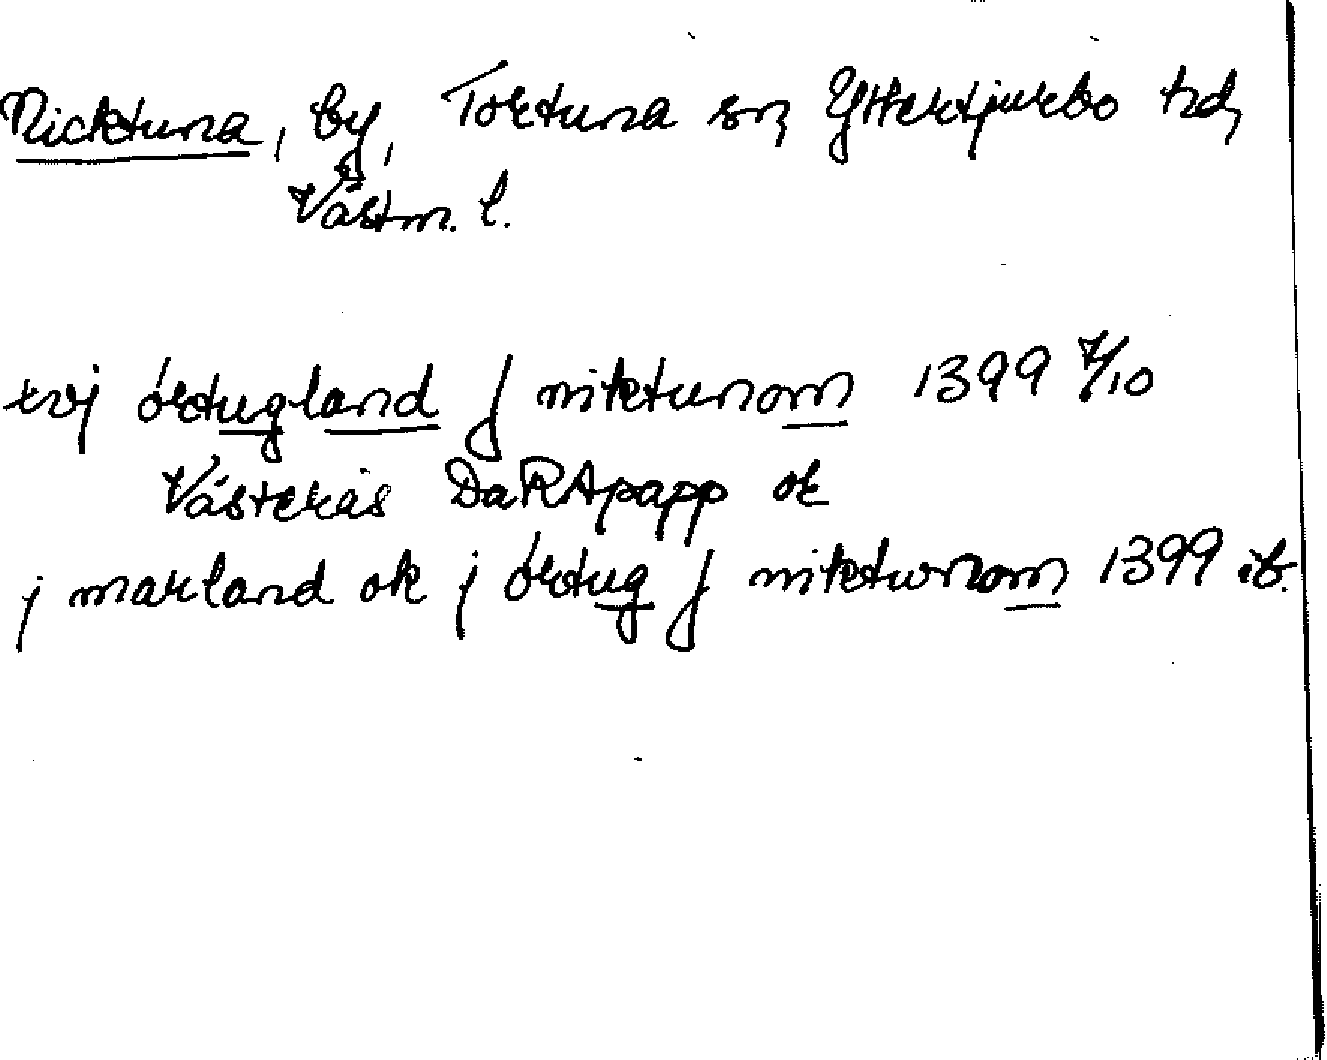 Nicktuna, by, Tortuna sn, Yttertjurbo hd,
Västm. l.
xvj örtugland j niktunom 1399 7/10
Västerås DaRApapp ok
j markland ok j örtug j niktunom 1399 ib.